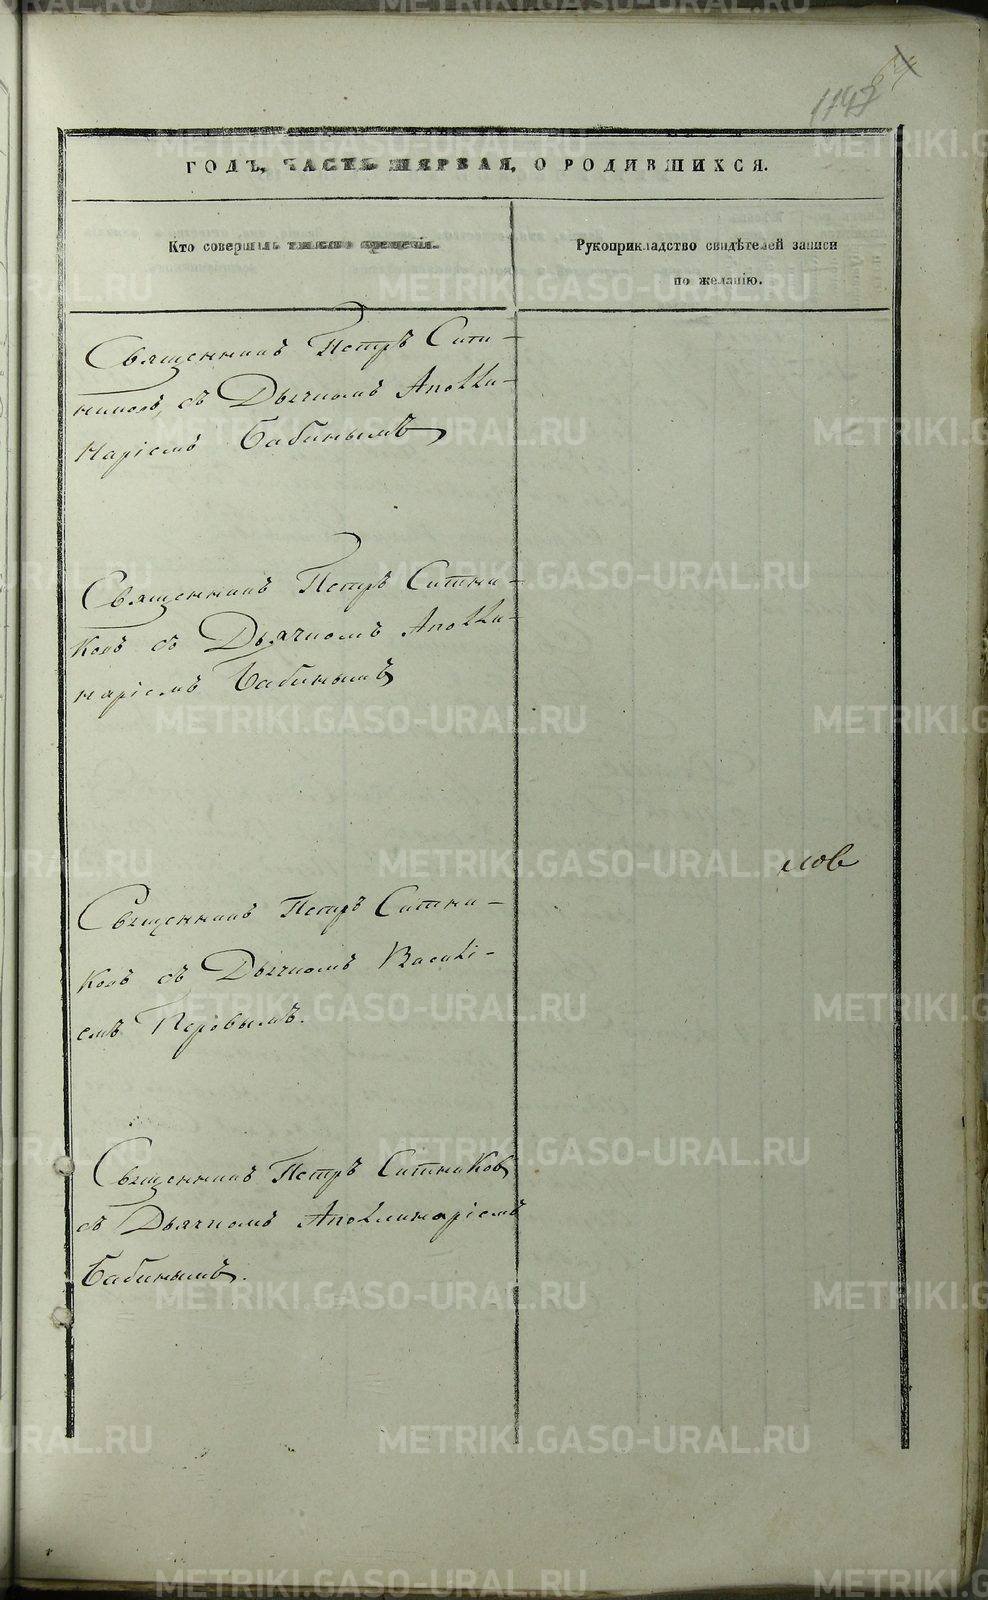 1147
64
ГОДЪ, ЧАСТЬ ПЯРВАЯ, О РОДИВШИХСЯ.
Кто совершилъ таинство крещенія.
Рукоприкладство свидѣтелей записи
по желанію.
Священникъ Петръ Сит-
никовъ, съ Дьячкомъ Аполли-
наріемъ Бабинымъ
Священникъ Петръ Ситни-
ковъ съ Дьячкомъ Аполли-
наріемъ Бабинымъ
лов
Священникъ Петръ Ситни-
ковъ съ Дьячкомъ Василі-
емъ Перовымъ.
Священникъ Петръ Ситников
съ Дьячкомъ Аполлинаріемъ
Бабинымъ.
METRIKI.GASO-URAL.RU